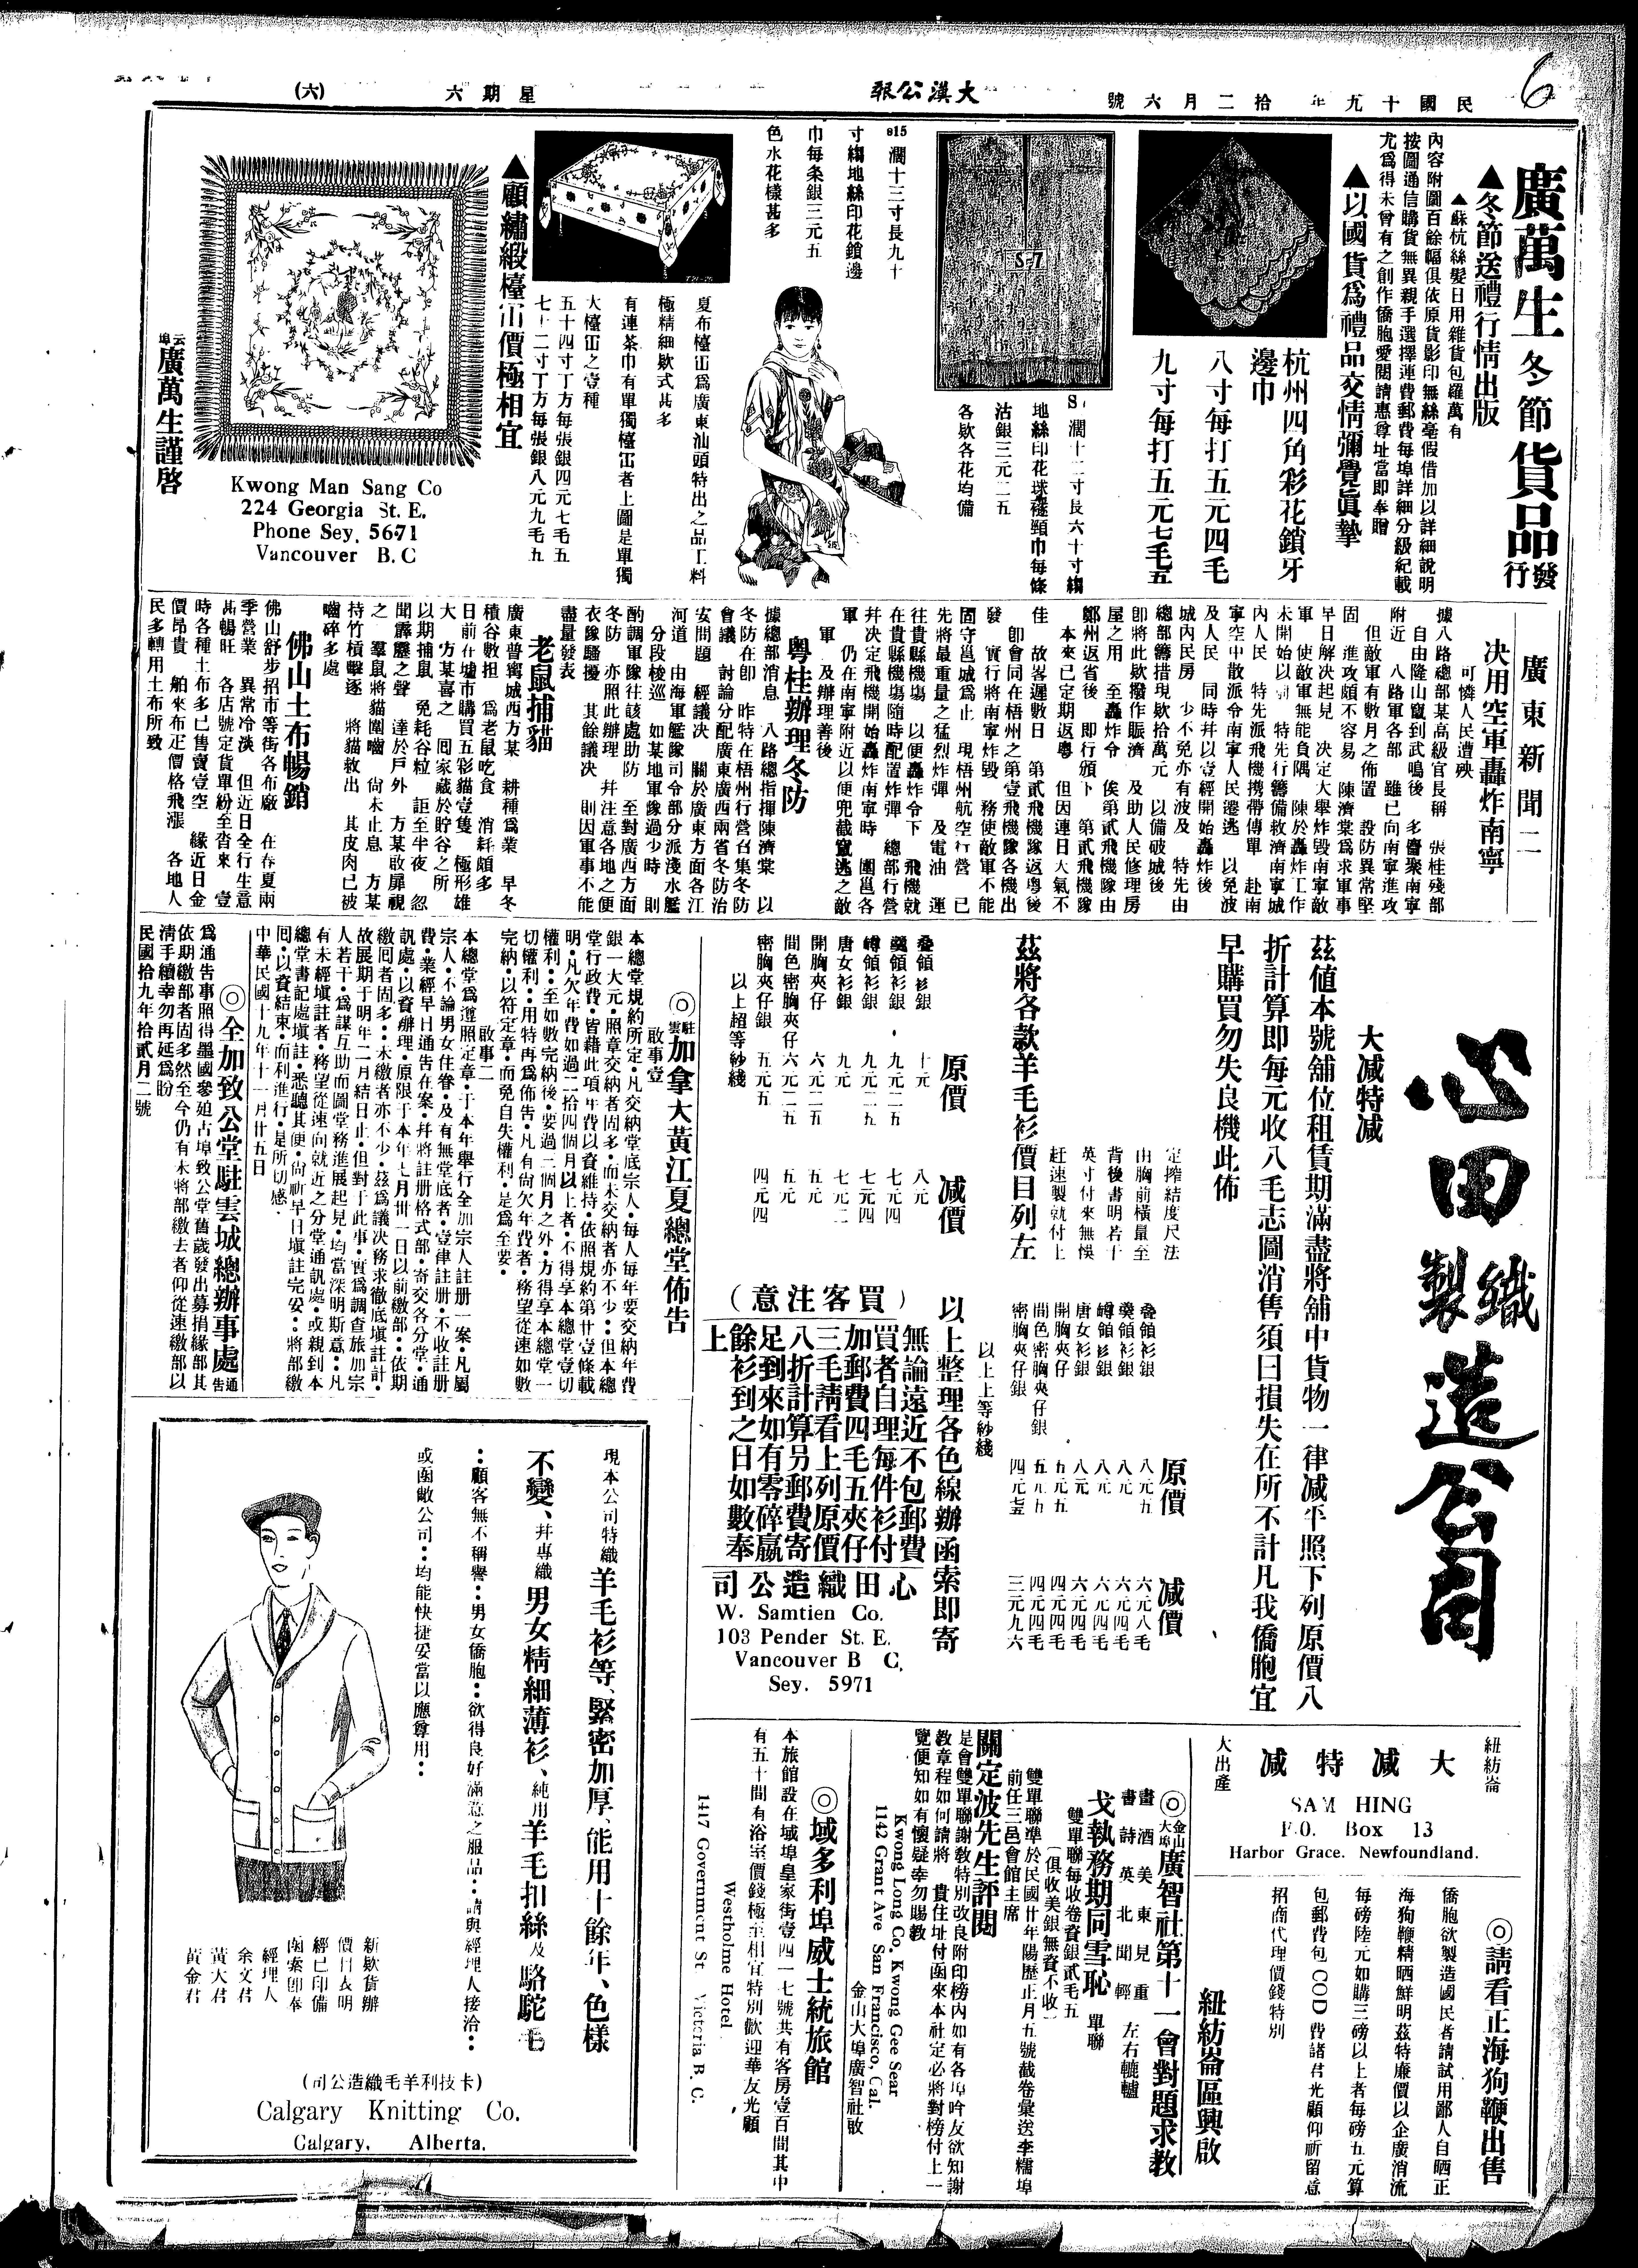 民國十九年　拾二月六號
大漢公報
星期六
(六)
6
廣萬生冬節貨品發行
▲冬節送禮行情出版
▲蘇杭絲髮日用雜貨包羅萬有
內容附圖百餘幅俱依原貨影印無絲毫假借加以詳細說明
按圖通信購貨無異親手選擇運費郵費每埠詳細分級紀載
尤爲得未曾有之創作僑胞愛閱請惠尊址當即奉贈
▲以國貨爲禮品交情彌覺眞摯
杭州四角彩花鎖牙
邊巾
八寸每打五元四毛
九寸每打五元七毛五
S-7
濶十二寸長六十寸縐
地絲印花球襚頸巾每條
沽銀三元二五
各欵各花均備
e15 濶十三寸長九十
寸縐地絲印花鎖邊
巾每条銀三元五
色水花樣甚多
夏布檯帘爲廣東汕頭特出之品工料
極精細欵式甚多
有連茶巾有單獨檯帘者上圖是單獨
大檯帘之壹種
五十四寸丁方每張銀四元七毛五
七十二寸丁方每張銀八元九毛五
▲顧繡緞檯帘價極相宜
云埠廣萬生謹啓
Kwong Man Sang Co
224 Georgia St. E.
Phone Sey. 5671
Vancouver B. C
廣東新聞二
決用空軍轟炸南寧
可憐人民遭殃
據八路總部某高級官長稱　張桂殘部
自由隆山竄到武鳴後　多麕聚南寧
附近　八路軍各部　雖已向南寧進攻
但敵軍有數月之佈置　設防異常堅
固　進攻頗不容易　陳濟棠爲求軍事
早日解決起見　決定大舉炸毀南寧敵
軍　使敵軍無能負隅　陳於轟炸工作
未開始以前　特先行籌備救濟南寧城
內人民　特先派飛機携帶傳單　赴南
寧空中散派令南寧人民遷逃　以免波
及人民　同時幷以壹經開始轟炸後
城內民房　少不免亦有波及　特先由
總部籌措現欵拾萬元　以備破城後
即將此欵撥作賑濟　及助人民修理房
屋之用　至轟炸令　俟第貳飛機隊由
鄭州返省後　即行頒下　第貳飛機隊
本來已定期返粵　但因連日大氣不
佳　故畧遲數日　第貳飛機隊返粵後
卽會同在梧州之第壹飛機隊各機出
發　實行將南寧炸毀　務使敵軍不能
固守邕城爲止　現梧州航空行營　已
先將最重量之猛烈炸彈　及電油　運
往貴縣機塲　以便轟炸令下　飛機就
在貴縣機塲隨時配置炸彈　總部行營
幷決定飛機開始轟炸南寧時　圍邕各
軍　仍在南寧附近以便兜截竄逃之敵
軍　及辦理善後
粵桂辦理冬防
據總部消息　八路總指揮陳濟棠　以
冬防在卽　昨特在梧州行營召集冬防
會議　討論分配廣東廣西兩省冬防治
安問題　經議決　關於廣東方面各江
河道　由海軍艦隊司令部分派淺水艦
分段梭巡　如某地軍隊過少時　則
酌調軍隊往該處助防　至對廣西方面
冬防　亦照此辦理　幷注意各地之便
衣隊騷擾　其餘議決　則因軍事不能
盡量發表
老鼠捕貓
廣東普寗城西方某　耕種爲業　早冬
積谷數担　爲老鼠吃食　消耗頗多
日前在墟市購買五彩貓壹隻　極形雄
大　方某喜之　囘家藏於貯谷之所
以期捕鼠　免耗谷粒　詎至半夜　忽
聞霹靂之聲　達於戶外　方某敢扉視
之　羣鼠將貓圍嚙　尙未止息　方某
持竹槓擊逐　將貓救出　其皮肉已被
嚙碎多處
佛山土布暢銷
佛山舒步招市等街各布廠　在春夏兩
季營業　異常冷淡　但近日全行生意
甚暢旺　各店號定貨單紛至沓來　壹
時各種土布多已售賣壹空　緣近日金
價昂貴　舶來布疋價格飛漲　各地人
民多轉用土布所致
心田織製造公司
大减特减
茲值本號舖位租賃期滿盡將舖中貨物一律减平照下列原價八
折計算即每元收八毛志圖消售須曰損失在所不計凡我僑胞宜
早購買勿失良機此佈
茲將各欵羊毛衫價目列左
定搾結度尺法
由胸前橫量至
背後書明若干
英寸付來無悞
赶速製就付上
原價
减價
叠領衫銀　十元　八元
㷼領衫銀　九元二五　七元四
罇領衫銀　九元二五　七元四
唐女衫銀　九元　七元二
開胸夾仔　六元二五　五元
間色密胸夾仔　六元二五　五元
密胸夾仔銀　五元五　四元四
以上超等紗綫
原價
减價
叠領衫銀　八元五　六元八毛
㷼領衫銀　八元　六元四毛
罇領衫銀　八元　六元四毛
唐女衫銀　八元　六元四毛
開胸夾仔　五元五　四元四毛
間色密胸夾仔銀　五元五　四元四毛
密胸夾仔銀　四元　三元九六
以上上等紗綫
以上整理各色線辦函索即寄
(買客注意)
無論遠近不包郵費
買者自理每件衫付
加郵費四毛五夾仔
三毛請看上列原價
八折計算另郵費寄
足到來如有零碎嬴
餘衫到之日如數奉
上
心田織造公司
W. Samtien Co.
103 Pender St. E.
Vancouver B C.
Sey. 5971
◎駐雲加拿大黃江夏總堂佈告
啟事壹
本總堂規約所定·凡交納堂底宗人·每人每年要交納年費
銀一大元·照章交納者固多·而未交納者亦不少··但本總
堂行政費·皆藉此項年費以資維持·依照規約第廿壹條載
明·凡欠年費如過二拾四個月以上者·不得享本總堂壹切
權利··至如數完納後·要過二個月之外·方得享本總堂一
切權利·用特再爲佈告·凡有尙欠年費者·務望從速如數
完納·以符定章·而免自失權利·是爲至要·
啟事二
本總堂爲遵照定章·于本年舉行全加宗人註册一案·凡屬
宗人·不論男女住眷·及有無堂底者·壹律註册·不收註册
費·業經早日通告在案·幷將註册格式部·寄交各分堂·通
訊處·以資辦理·原限于本年七月卅一日以前繳部··依期
繳囘者固多··未繳者亦不少·茲爲議決務求徹底塡註計·
故展期于明年二月結日止·但對于此事·實爲調查旅加宗
人若干·爲謀互助而圖堂務進展起見·均當深明斯意··凡
有未經塡註者·務望從速向就近之分堂通訊處·或親到本
總堂書記處塡註·悉聽其便·尙祈早日塡註完妥··將部繳
囘·以資結束·而利進行·是所切感·
中華民國十九年十一月廿五日
◎全加致公堂駐雲城總辦事處通告
爲通告事照得墨國參廹古埠致公堂舊歲發出募捐緣部其
依期繳部者固多然至今仍有未將部繳去者仰從速繳部以
淸手續幸勿再延爲盼
民國拾九年拾貳月二號
現本公司特織羊毛衫等、緊密加厚、能用十餘年、色樣
不變、幷專織男女精細薄衫、純用羊毛扣絲及駱駝毛
··顧客無不稱譽··男女僑胞··欲得良好滿意之服品··請與經理人接洽··
或函敝公司··均能快捷妥當以應尊用··
新欵貨辦
價目表明
經已印備
函索卽奉
經理人
余文君
黃大君
黃金君
(卡技利羊毛織造公司)
Calgary Knitting Co.
Calgary, Alberta.
紐紡崙
大减特减
大出產
SAM HING
P.O. Box 13
Harbor Grace, Newfoundland.
◎請看正海狗鞭出售
僑胞欲製造國民者請試用鄙人自晒正
海狗鞭精晒鮮明茲特廉價以企廣消流
每磅陸元如購三磅以上者每磅五元算
包郵費包COD費諸君光顧仰祈留意
招商代理價錢特別
紐紡崙區興啟
◎金山大埠廣智社第十一會對題求敎
畫酒美東見重
書詩英北聞輕
左右轆轤
戈執務期同雪恥　單聯
雙單聯每收卷資銀貳毛五
(俱收美銀無資不收)
雙單聯準於民國廿年陽歷正月五號截卷彙送李襦埠
前任三邑會館主席
關定波先生評閱
是會雙單聯謝敎特別改良附印榜內如有各埠吟友欲知謝
敎章程如何請將　貴住址付函來本社定必將對榜付上一
覽便知如有懷疑幸勿賜敎
Kwong Long Co. Kwong Gee Sear
1142 Grant Ave San Francisco, Cal.
金山大埠廣智社啟
◎域多利埠威士統旅館
本旅館設在域埠皇家街壹四一七號共有客房壹百間其中
有五十間有浴室價錢極至相宜特別歡迎華友光顧
Westholme Hotel
1417 Government St Victoria B. C.